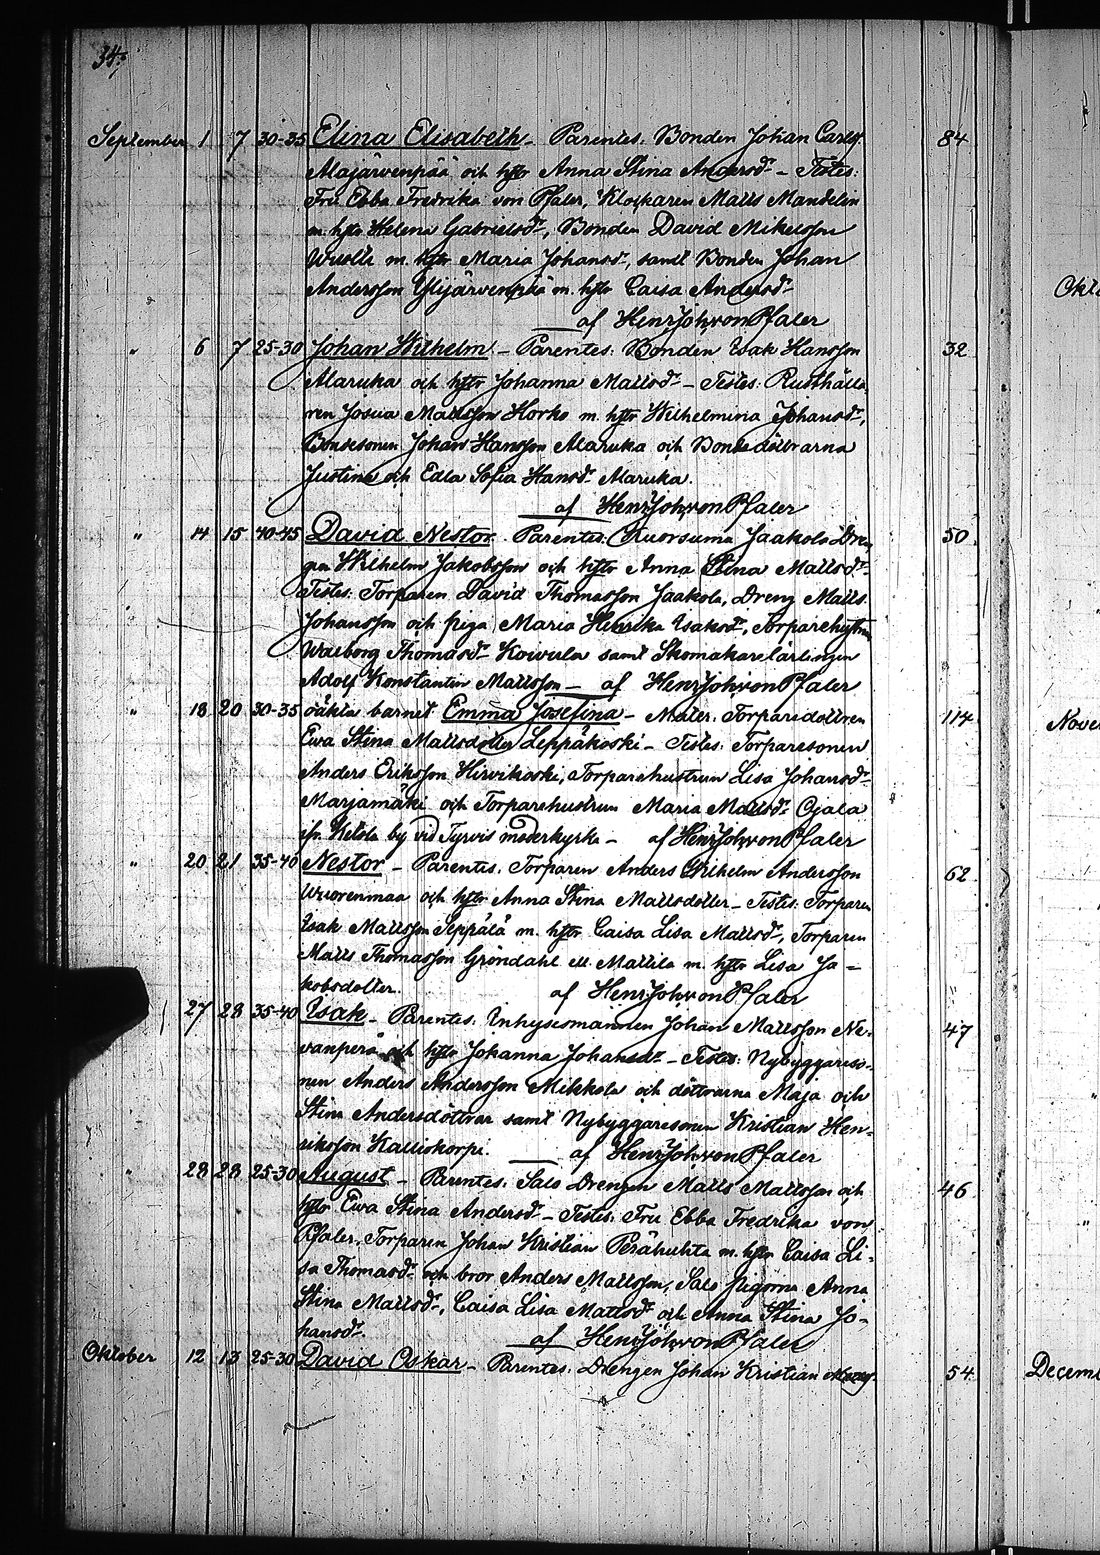 34.
September 1 7 30-35 Elina Elisabeth - Parentes: Bonden Johan Carls 84
Alajärvenpää och hstr Anna Stina Andersdr - Testes:
Fru Ebba Fredrika von Pfaler, Klockaren Matts Mandelin
m. hstr Helena Gabrielsdr, Bonden David Mikelsson
Wuolle m. hstr Maria Johansdr, samt Bonden Johan
Andersson Ylijärvenpää m. hstr Caisa Andersdr
af Henr. Joh. von Pfaler
" 6 7 25-30 Johan Wilhelm - Parentes: Bonden Isak Hansson 32
Alaruka och hstr Johanna Mattsdr - Testes: Rusthålla
ren Josua Mattsson Horko m. hstr Wilhelmina Johansdr,
Bondesonen Johan Hansson Alaruka och Bondedöttrarna
Justina och Edla Sofia Hansdr Alaruka.
af Henr. Joh. von Pfaler
" 14 15 40-45 David Nestor - Parentes: Kuorsuma Jaakola Dren 50
gen Wilhelm Jakobsson och hstr Anna Stina Mattsdr -
Testes: Torparen David Thomasson Jaakola, Dreng Matts
Johansson och piga Maria Henrika Isaksdr, Torparehustrun
Walborg Thomasdr Koivula samt Skomakarelärlingen
Adolf Konstantin Mattsson - af Henr. Joh. von Pfaler
" 18 20 30-35 oäkta barnet Emma Josefina - Mater: Torparedottren 114
Ewa Stina Mattsdotter Leppäkoski - Testes: Torparesonen
Anders Eriksson Hirvikoski, Torparehustrun Lisa Johansdr
Marjamäki och Torparehustrun Maria Mattsdr Ojala
ifr. Ketola by vid Tyrvis moderkyrka - af Henr. Joh. von Pfaler
" 20 21 35-40 Nestor - Parentes: Torparen Anders Wilhelm Andersson 62
Wuorenmaa och hstr Anna Stina Mattsdotter - Testes: Torparen
Isak Mattsson Seppälä m. hstr Caisa Lisa Mattsdr, Torparen
Matts Thomasson Gröndahl ell. Mattila m. hstr Lisa Ja-
kobsdotter. af Henr. Joh. von Pfaler
27 28 35-40 Isak - Parentes: Inhysesmannen Johan Mattsson Ne- 47
vanperä och hstr Johanna Johansdr - Testes: Nybyggareso-
nen Anders Andersson Mikkola och döttrarna Maja och
Stina Andersdöttrar samt Nybyggaresonen Kristian Hen-
riksson Kalliokorpi. af Henr. Joh. von Pfaler
" 28 28 25-30 August - Parentes: Salo Drengen Matts Mattsson och 46
hstr Ewa Stina Andersdr - Testes: Fru Ebba Fredrika von
Pfaler, Torparen Johan Kristian Perähuhta m. hstr Caisa Li-
sa Thomasdr och bror Anders Mattsson, Salo pigorna Anna
Stina Mattsdr, Caisa Lisa Mattsdr och Anna Stina Jo-
hansdr. af Henr. Joh. von Pfaler
Oktober 12 13 25-30 David Oskar - Parentes: Drengen Johan Kristian 54
Okto
Nove
"
Decemb